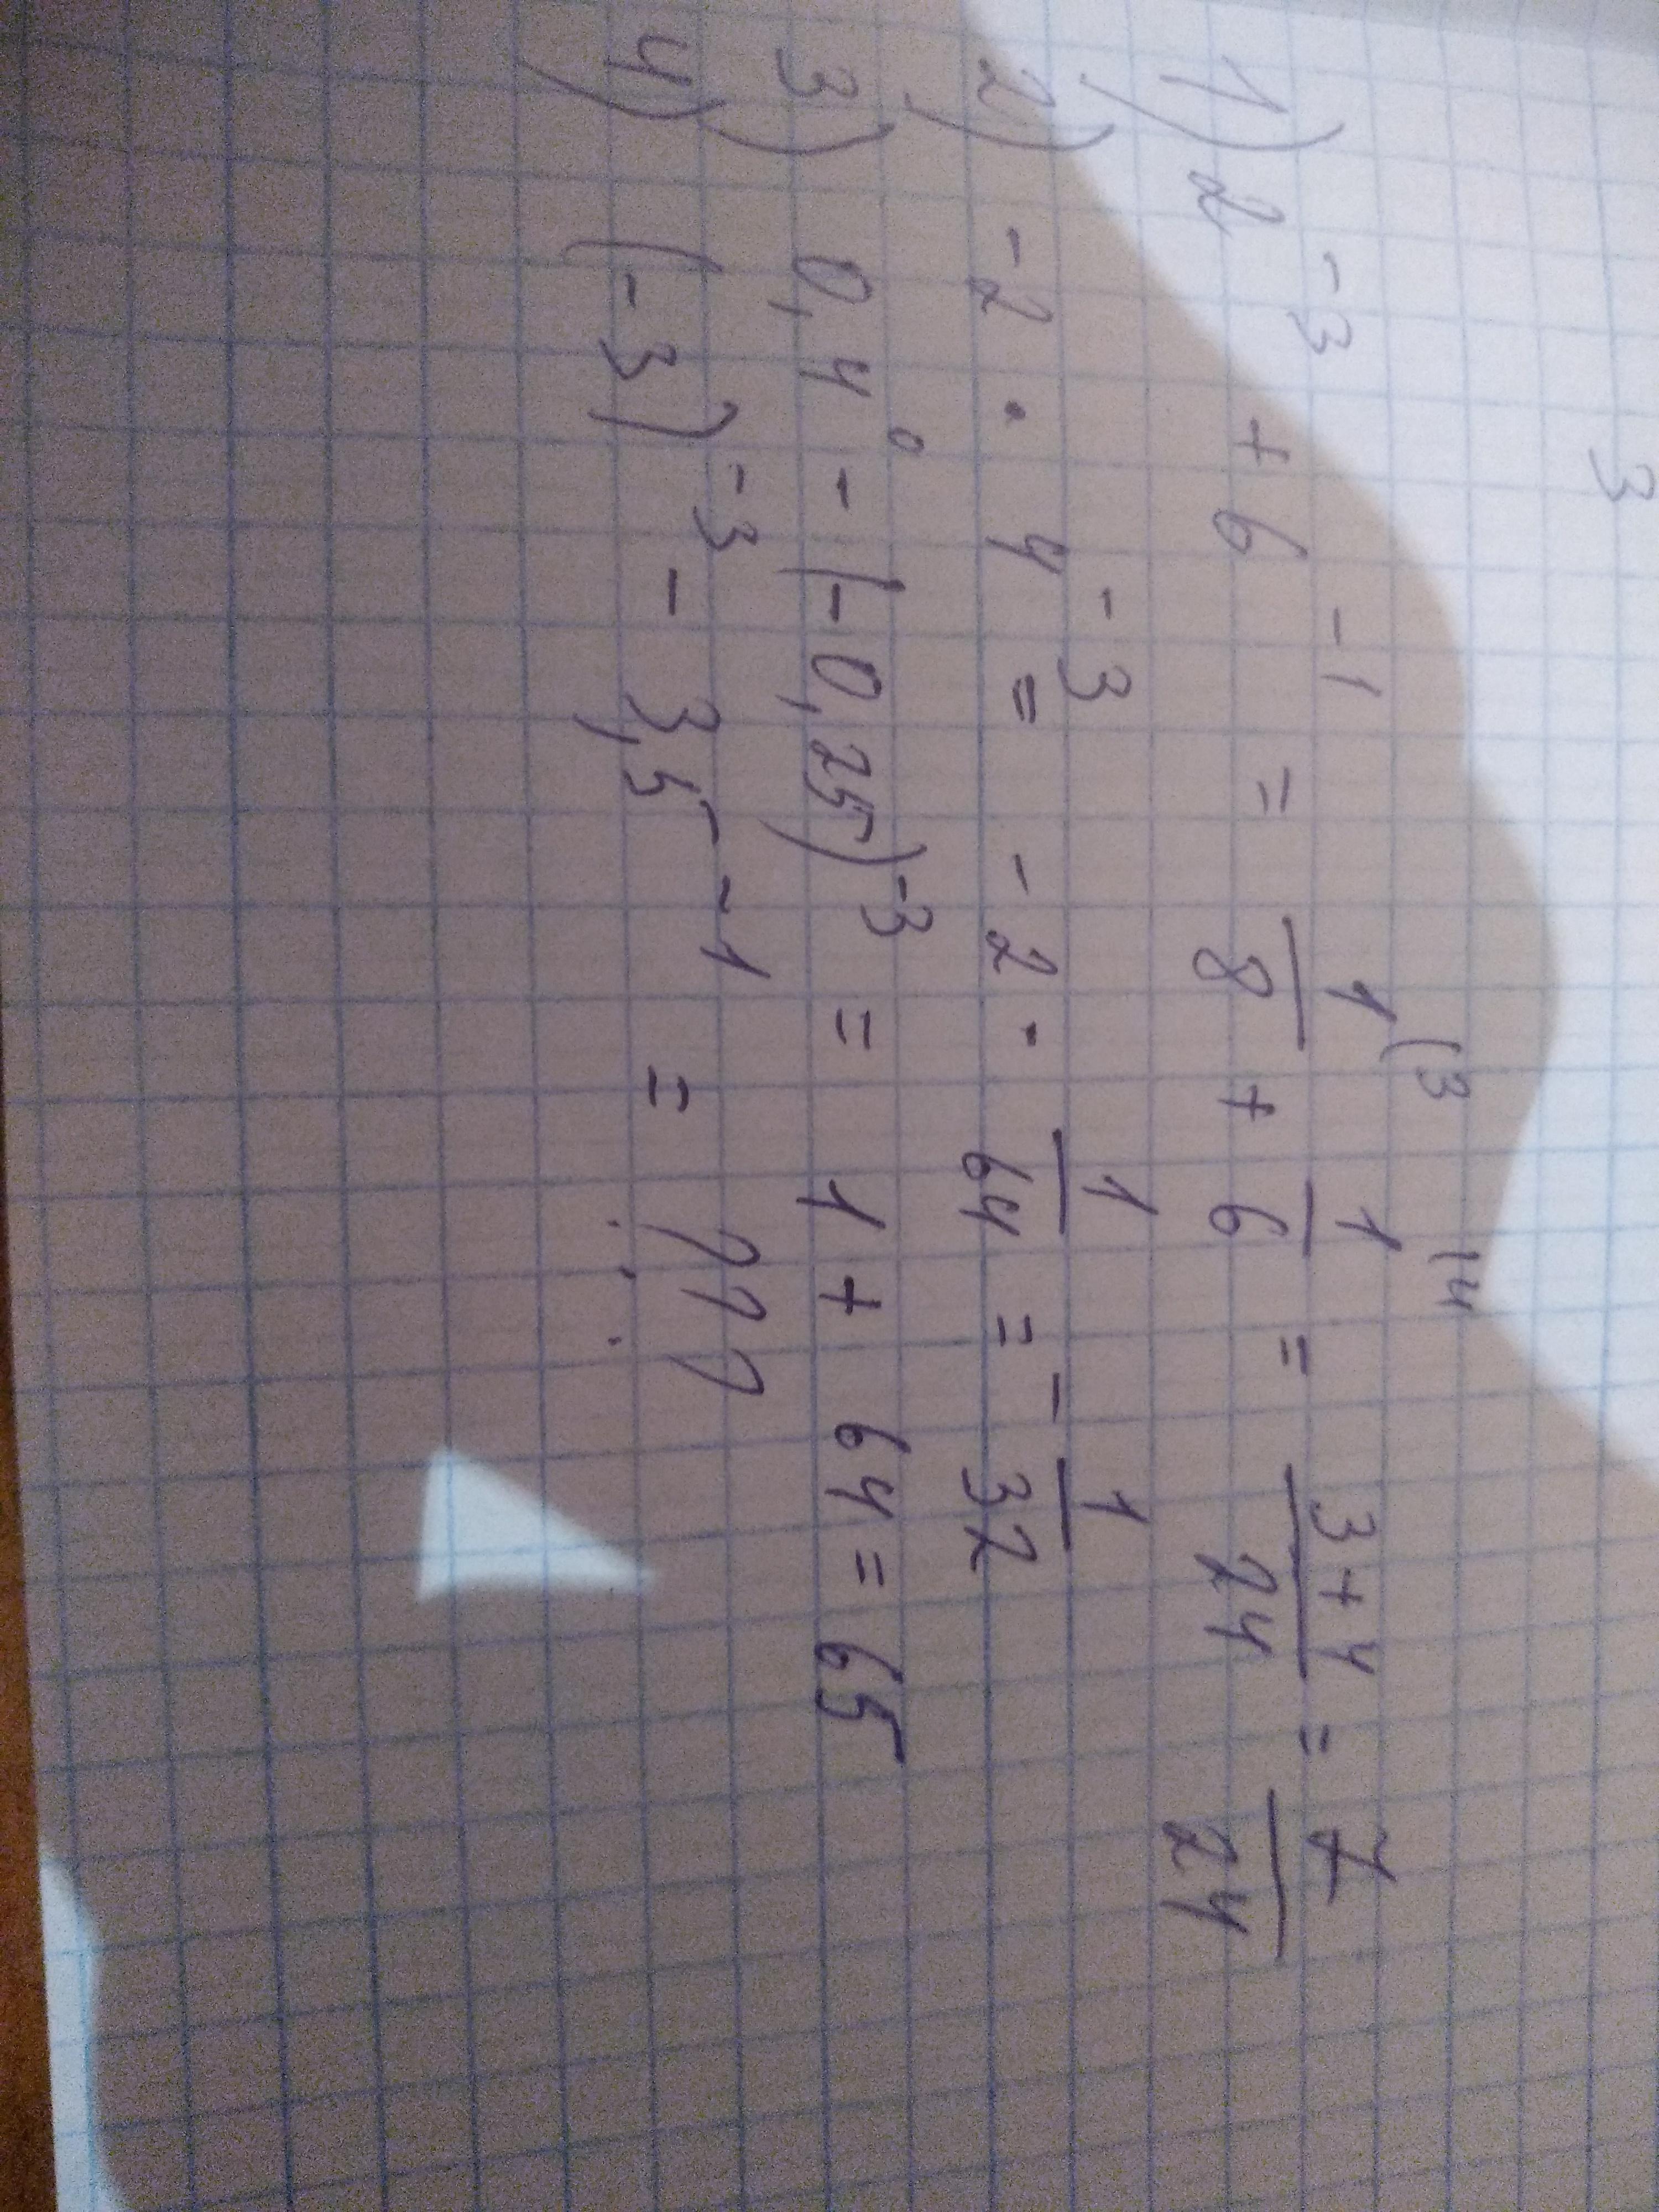 3
1) 2⁻³ + 6⁻¹ = 1/8 (3 + 1/6 (4 = 3+4/24 = 7/24
2) -2 · 4⁻³ = -2 · 1/64 = -1/32
3) 0,4⁰ - (-0,25)⁻³ = 1 + 64 = 65
4) (-3)⁻³ - 3,5⁻¹ = ???